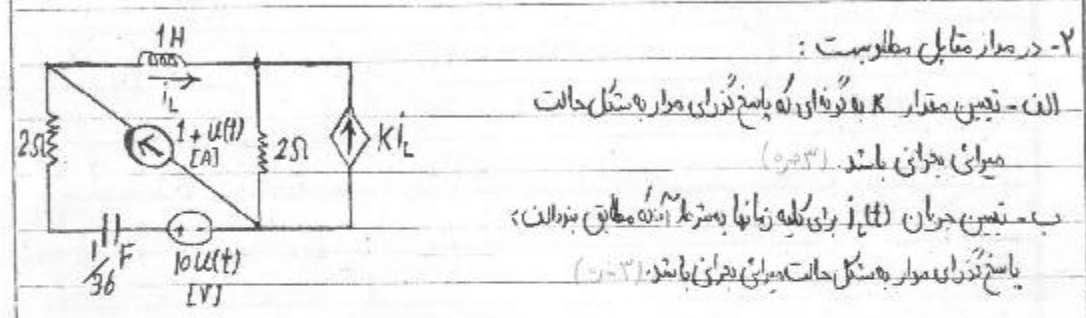 ۲- در مدار مقابل مطلوبست :
الف - تعیین مقدار K به گونه‌ای که پاسخ گذرای مدار به شکل حالت
میرائی بحرانی باشد. (۳ نمره)
ب - تعیین جریان iL(t) برای کلیه زمانها به شرط آنکه مطابق بند الف،
پاسخ گذرای مدار به شکل حالت میرائی بحرانی باشد. (۳ نمره)
1H
iL
2Ω
1 + u(t)
[A]
2Ω
KiL
1/36 F
+ -
10u(t)
[V]